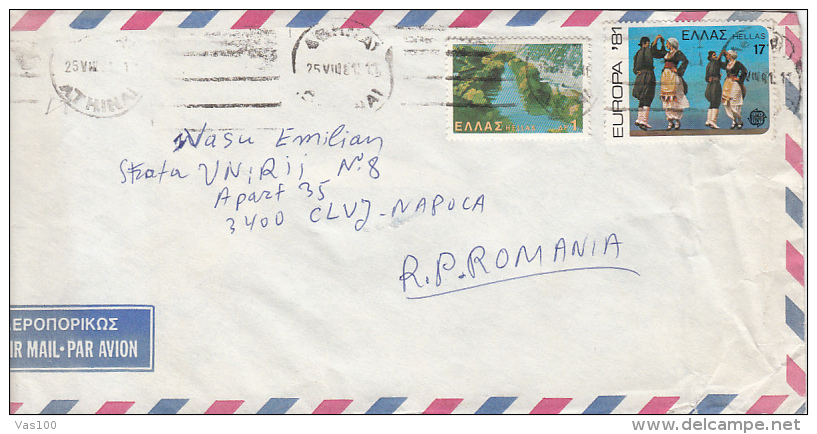 25 VIII
ATHINAI
25 VIII 81
ΕΛΛΑΣ HELLAS ΔΡ 1
EUROPA '81
ΕΛΛΑΣ HELLAS
17
Wasu Emilian
Strata UNiRij N:8
Apart 35
3400 CLUJ-NAPOCA
R.P.ROMANIA
ΕΡΟΠΟΡΙΚΩΣ
IR MAIL•PAR AVION
Vas100
www.delcampe.net